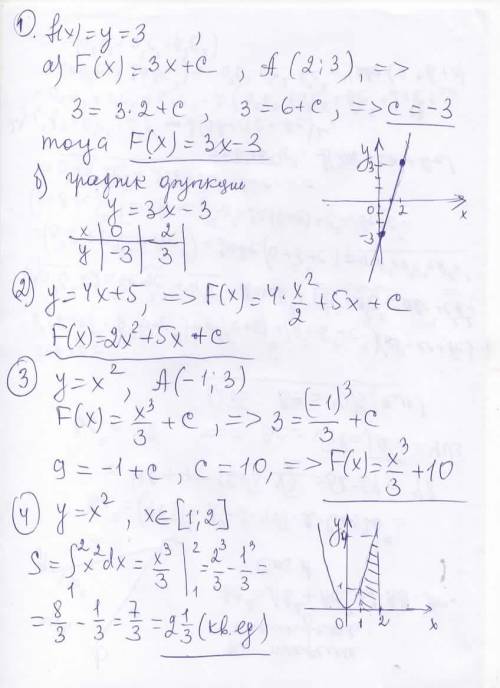 1. f(x)=y=3 ,
а) F(x)=3x+C, A(2;3) =>
3= 3·2+C, 3=6+C, => C=-3
тогда F(x)=3x-3
б) график функции
y=3x-3
x | 0 | 2
y | -3 | 3
y
3
0 2 x
-3
2) y=4x+5, => F(x)=4·x²/2+5x+C
F(x)=2x²+5x+C
3) y=x², A(-1;3)
F(x)=x³/3+C, => 3=(-1)³/3+C
9=-1+C, C=10, => F(x)=x³/3+10
4) y=x², x∈[1;2]
S=∫₁²x²dx=x³/3|₁²=2³/3-1³/3=
=8/3-1/3=7/3=2 1/3 (кв.ед)
y
4
1
0 1 2 x